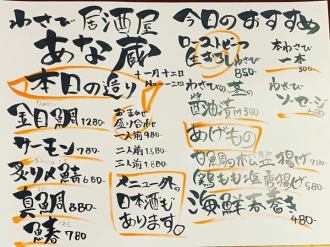 わさび居酒屋
あな蔵
本日の造り
十一月十二日
金目鯛 1280-
サーモン 780-
炙り〆鯖 680-
真鯛 880-
鰆 780
おまかせ
盛り合わせ
一人前 980-
二人前 1580-
三人前 1880-
メニュー外の
日本酒も
あります。
今日のおすすめ
ローストビーフ
生ざわしわさび
850-
わさびの茎の
醤油漬け 380-
本わさび
一本
300-
わさび
ソーセージ
680-
あげもの
甘鯛の松笠揚げ 780-
鶏もも塩唐揚げ 580
海鮮春巻き
480-